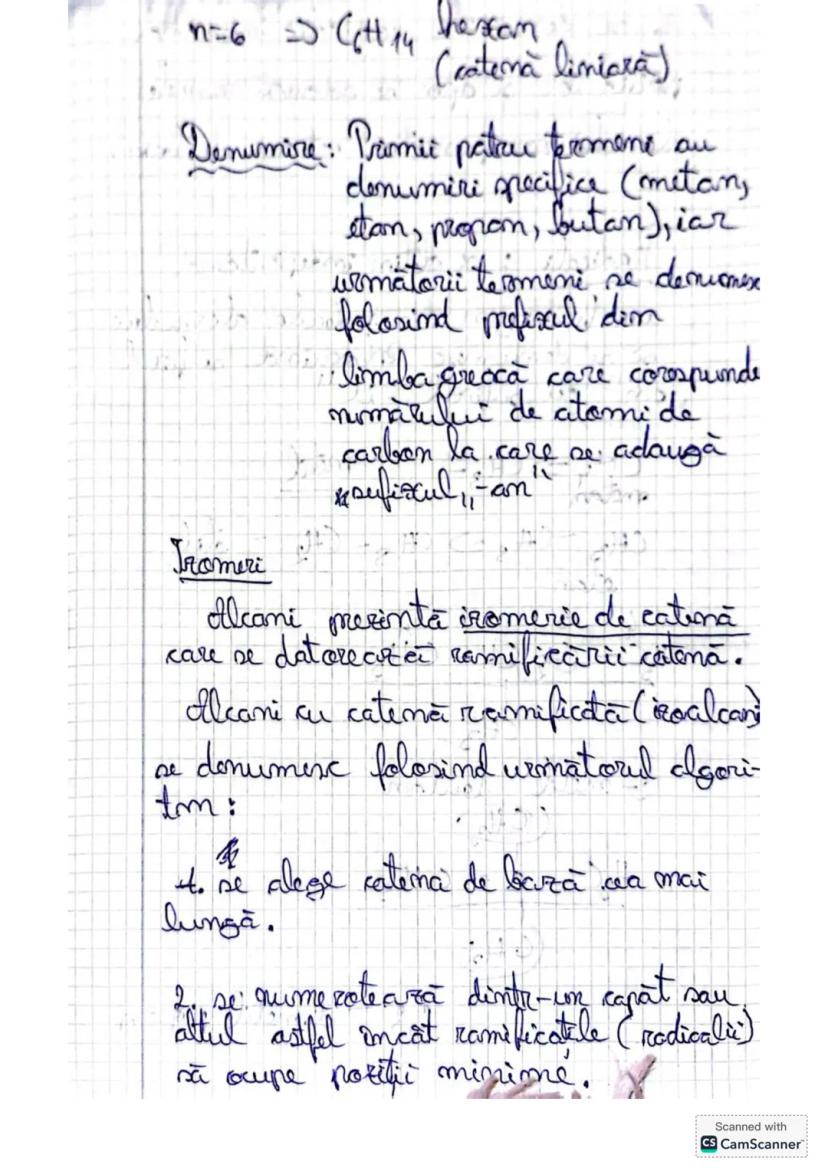 n=6 => C6H14 hexan
(catenă liniară)
Denumire: Primii patru termeni au
denumiri specifice (metan,
etan, propan, butan), iar
următorii termeni se denumesc
folosind prefixul din
limba greacă care corespunde
numărului de atomi de
carbon la care se adaugă
sufixul „-an"
Izomeri
Alcani prezintă izomerie de catenă
care se datorează ramificării catenă.
Alcani cu catenă ramificată (izoalcani)
se denumesc folosind următorul algori-
tm:
1. se alege catena de bază cea mai
lungă.
2. se numerotează dintr-un capăt sau
altul astfel încât ramificațile (radicalii)
să ocupe poziții minime.
Scanned with
CS CamScanner